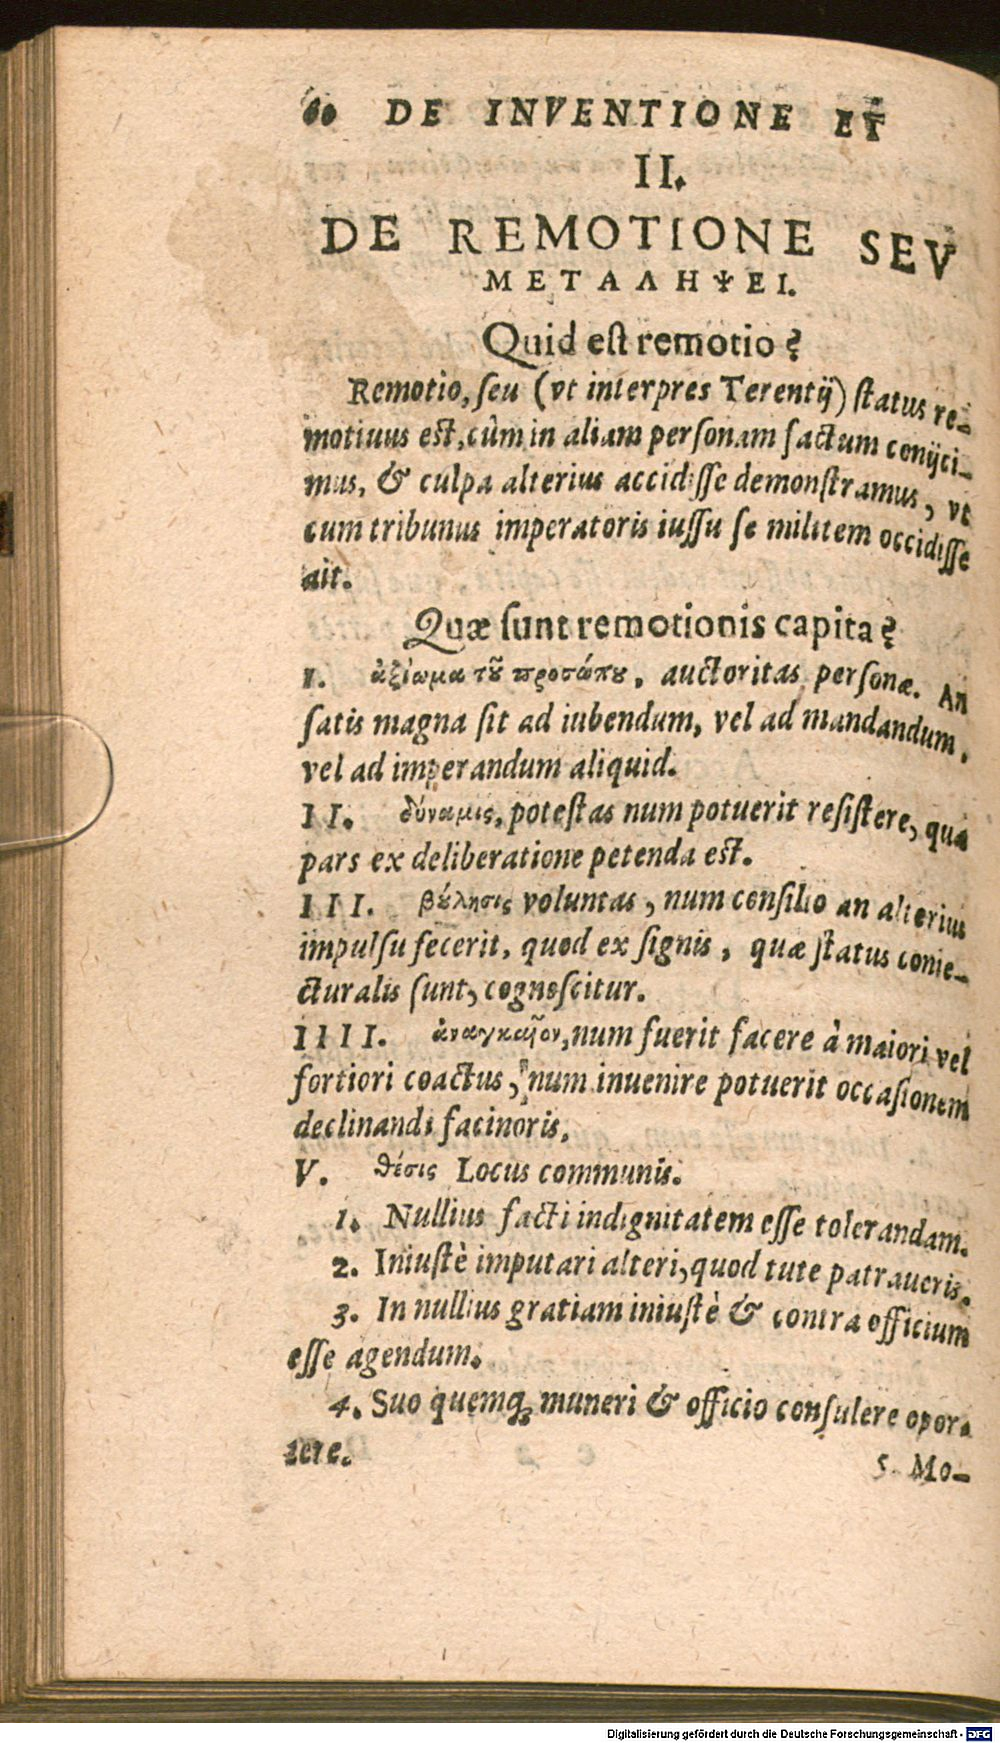 60 DE INVENTIONE ET
II.
DE REMOTIONE SEV
ΜΕΤΑΛΗΨΕΙ.
Quid est remotio?
Remotio, seu (vt interpres Terentij) status re-
motiuus est, cùm in aliam personam factum conijci-
mus, & culpa alterius accidisse demonstramus, vt
cum tribunus imperatoris iussu se militem occidisse
ait.
Quæ sunt remotionis capita?
I. ἀξίωμα τȣ͂ προσώπȣ, auctoritas personæ. An
satis magna sit ad iubendum, vel ad mandandum,
vel ad imperandum aliquid.
II. δύναμις, potestas num potuerit resistere, quæ
pars ex deliberatione petenda est.
III. βȣ́λησις voluntas, num consilio an alterius
impulsu fecerit, quod ex signis, quæ status conie-
cturalis sunt, cognoscitur.
IIII. ἀναγκαῖον, num fuerit facere à maiori vel
fortiori coactus, num inuenire potuerit occasionem
declinandi facinoris.
V. θέσις Locus communis.
1. Nullius facti indignitatem esse tolerandam.
2. Iniustè imputari alteri, quod tute patraueris.
3. In nullius gratiam iniustè & contra officium
esse agendum.
4. Suo quemq; muneri & officio consulere opor-
tere.
5. Mo-
Digitalisierung gefördert durch die Deutsche Forschungsgemeinschaft - DFG